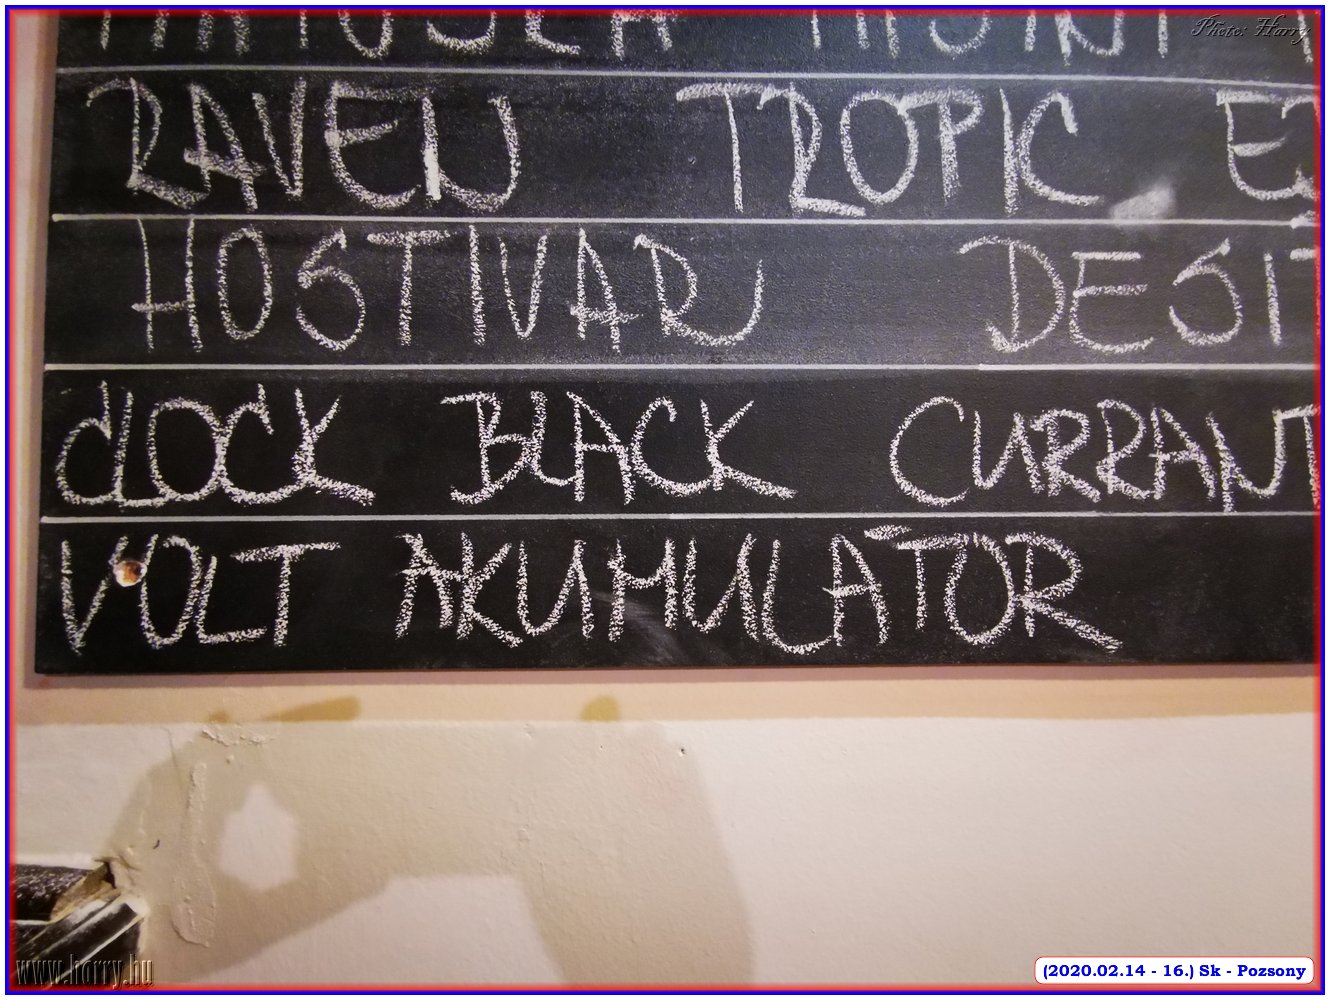 Photo: Harry
RAVEN TROPIC
HOSTIVAR DESIT
CLOCK BLACK CURRANT
VOLT AKUMULÁTOR
www.harry.hu
(2020.02.14 - 16.) Sk - Pozsony